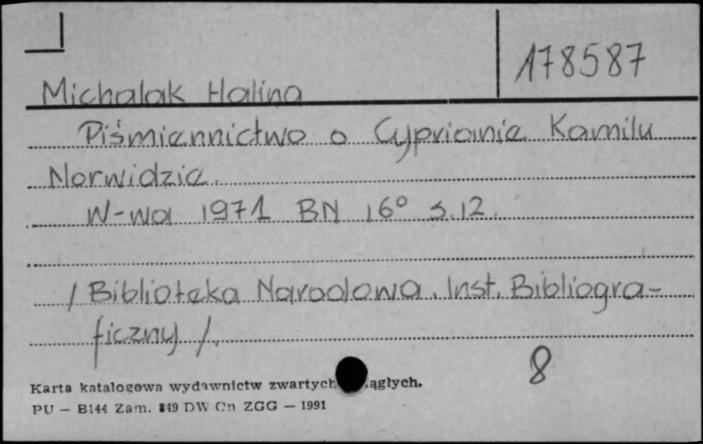 178587
Michalak Halina
Piśmiennictwo o Cyprianie Kamilu
Norwidzie.
W-wa 1971 BN 16° s. 12.
/ Biblioteka Narodowa. Inst. Bibliogra-
ficzny /.
8
Karta katalogowa wydawnictw zwartych ągłych.
PU — B144 Zam. 849 DW Cn ZGG — 1991